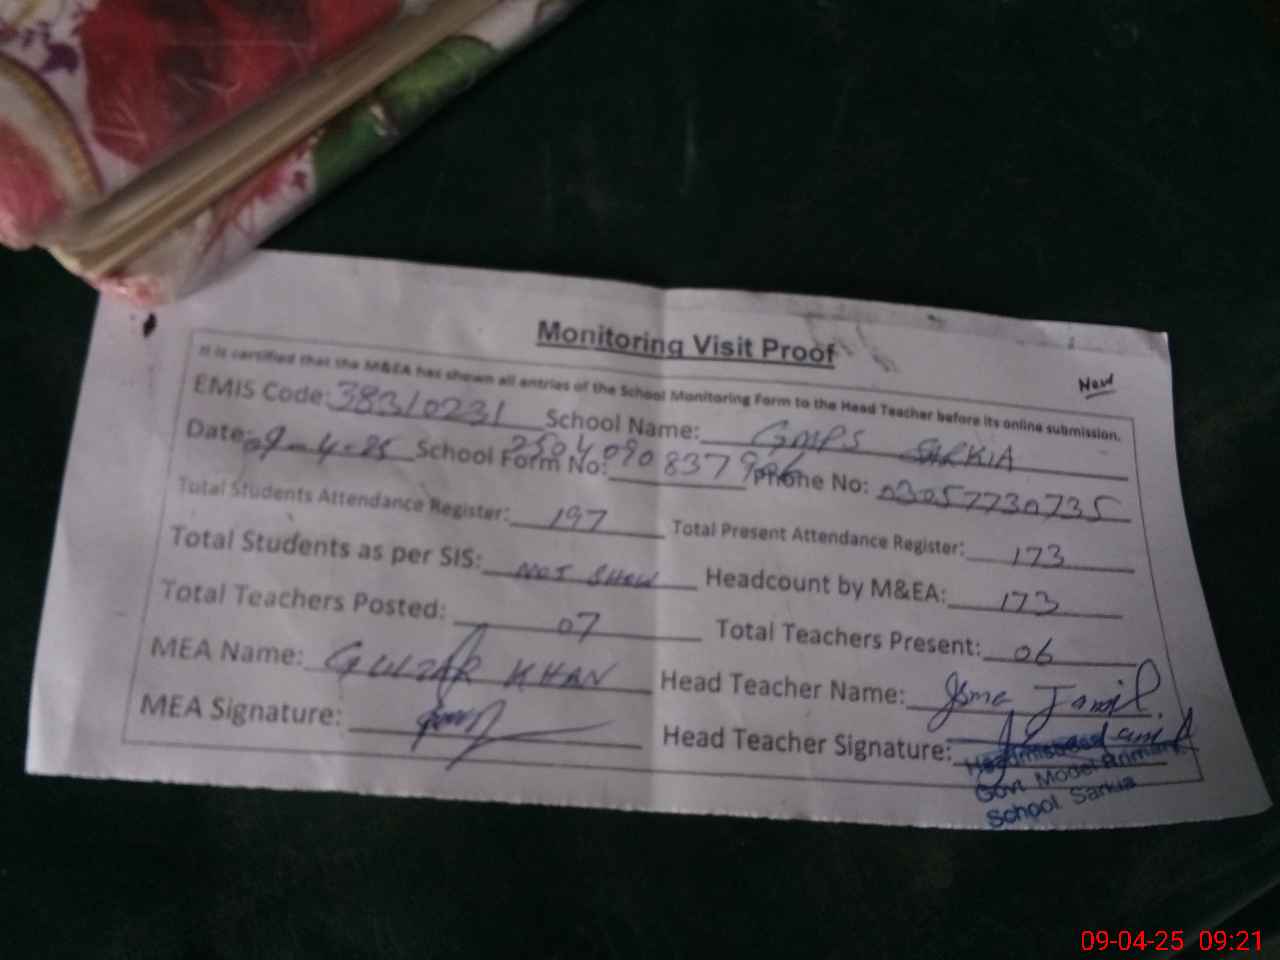 Monitoring Visit Proof
New
It is certified that the M&EA has shown all entries of the School Monitoring Form to the Head Teacher before its online submission.
EMIS Code: 38310231 School Name: GMPS SARKIA
Date: 09-4-25 School Form No: 2504090837 Phone No: 03057730735
Total Students Attendance Register: 197 Total Present Attendance Register: 173
Total Students as per SIS: NOT SHOW Headcount by M&EA: 173
Total Teachers Posted: 07 Total Teachers Present: 06
MEA Name: GULZAR KHAN Head Teacher Name: Jamil
MEA Signature: Head Teacher Signature:
Headmistress
Govt Model Primary
School Sarkia
09-04-25 09:21